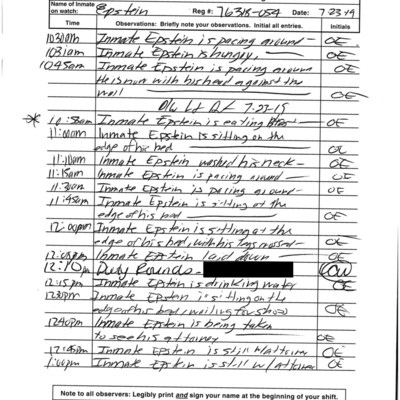 Name of Inmate
on watch: Epstein Reg #: 76318-054 Date: 7-23-19
Time Observations: Briefly note your observations. Initial all entries. Initials
1030AM Inmate Epstein is pacing around — OE
1031am Inmate Epstein is hungry. OE
1045am Inmate Epstein is pacing around
He is now with his head against the
wall OE
7-23-19
* 10:58am Inmate Epstein is eating OE
11:00am Inmate Epstein is sitting on the
edge of his bed OE
11:10am Inmate Epstein washed his neck — OE
11:15am Inmate Epstein is pacing around — OE
11:30am Inmate Epstein is pacing around — OE
11:45am Inmate Epstein is sitting at the
edge of his bed OE
12:00pm Inmate Epstein is sitting at the
edge of his bed, with his legs crossed — OE
12:05pm Inmate Epstein laid down — OE
12:10pm Duty Rounds -
12:15pm Inmate Epstein is drinking water OE
1230pm Inmate Epstein is sitting on the
edge of his bed, waiting for OE
1240pm Inmate Epstein is being taken
to see his attorney OE
12:45pm Inmate Epstein is still w/attorney OE
1:00pm Inmate Epstein is still w/attorney OE
Note to all observers: Legibly print and sign your name at the beginning of your shift.